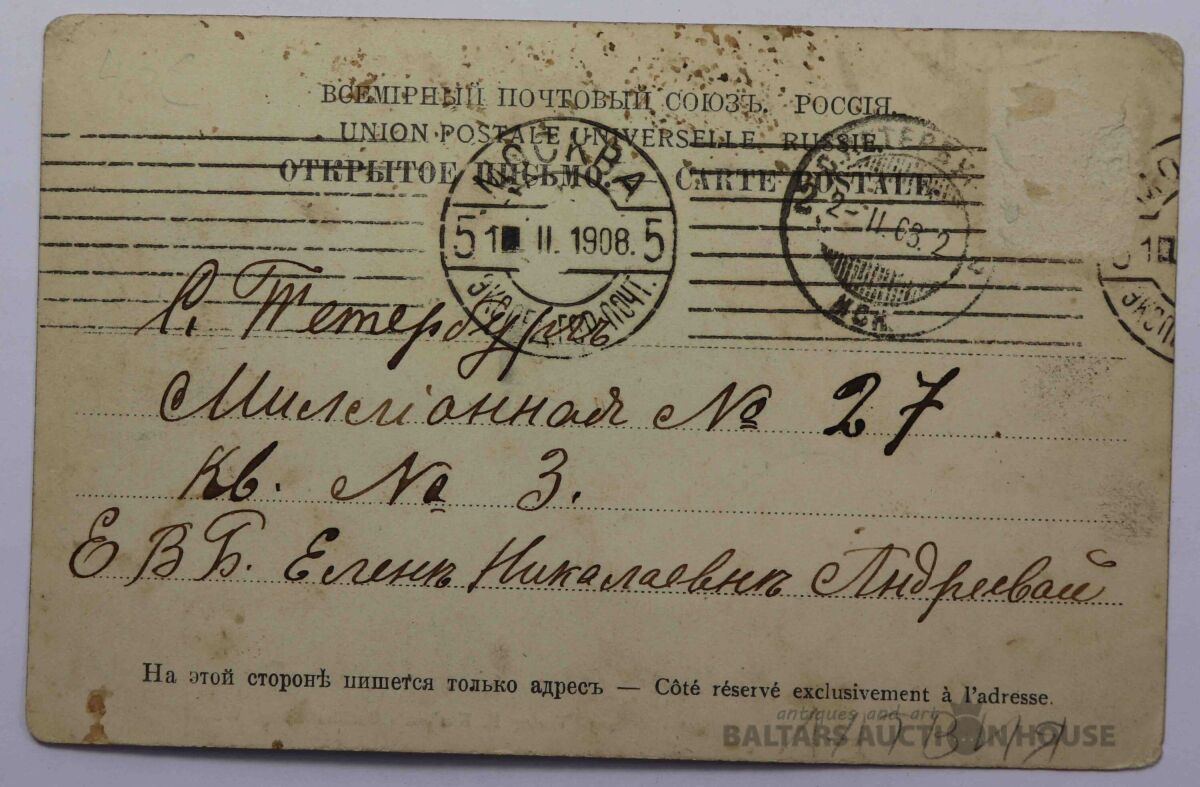 ВСЕМІРНЫЙ ПОЧТОВЫЙ СОЮЗЪ. РОССІЯ.
UNION POSTALE UNIVERSELLE. RUSSIE.
ОТКРЫТОЕ ПИСЬМО. — CARTE POSTALE
МОСКВА
5 1 II 1908. 5
2- II. 08. 2
МСК.
С. Петербургъ
Миллiонная № 27
кв. № 3.
Е В Б. Еленѣ Николаевнѣ Андреевой
На этой сторонѣ пишется только адресъ — Côté réservé exclusivement à l'adresse.
antiques and art
BALTARS AUCTION HOUSE